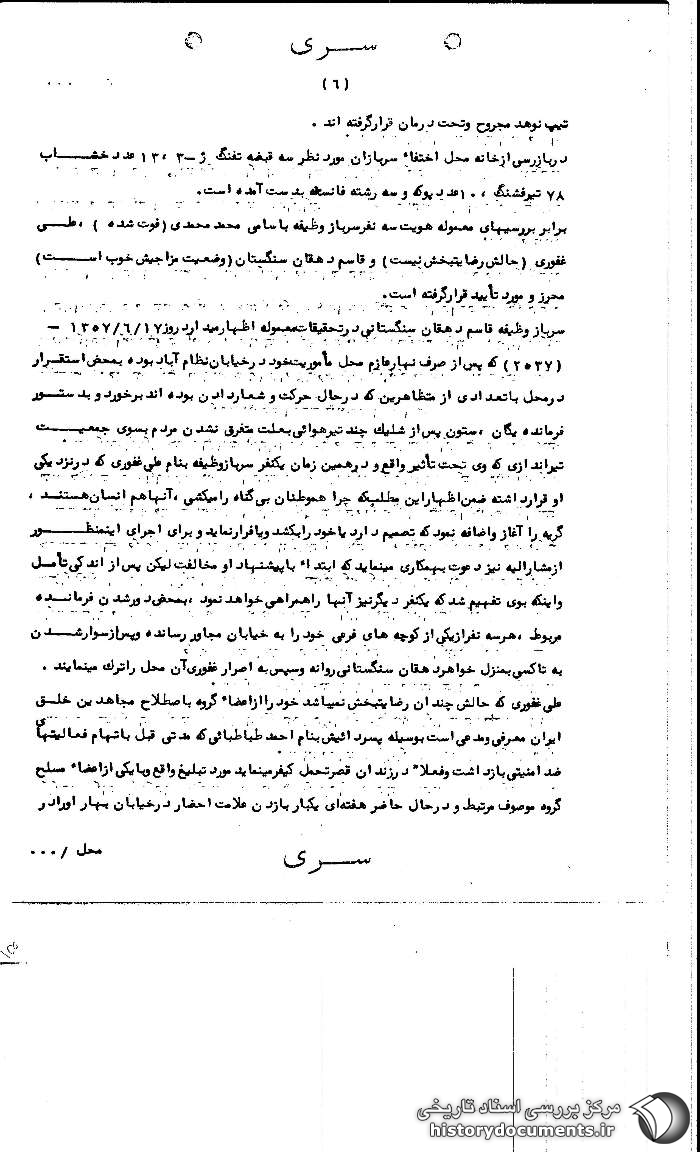 سـری
(٦)
...
تیپ نوهد مجروح وتحت درمان قرارگرفته اند .
دربازرسی ازخانه محل اختفاء سربازان مورد نظر سه قبضه تفنگ ژ-۳ ، ۱۳ عدد خشــاب
۷۸ تیرفشنگ ، ۱۰عدد پوکه و سه رشته فانسقه بدست آمده است.
برابر بررسیهای معموله هویت سه نفرسرباز وظیفه باسامی محمد محمدی (فوت شده ) ،علــی
غفوری (حالش رضایتبخش نیست) و قاسم دهقان سنگستان (وضعیت مزاجیش خوب اســت)
محرز و مورد تأیید قرارگرفته است.
سرباز وظیفه قاسم دهقان سنگستانی درتحقیقات معموله اظهارمیدارد روز ۱۳۵۷/۶/۱۷ -
(۲۵۳۷) که پس از صرف نهارعازم محل مأموریت خود درخیابان نظام آباد بوده بمحض استقرار
درمحل باتعدادی از متظاهرین که درحال حرکت و شعاردادن بوده اند برخورد و بدستور
فرمانده یگان ،ستون پس از شلیک چند تیرهوائی بعلت متفرق نشدن مردم بسوی جمعیــت
تیراندازی که وی تحت تأثیر واقع و درهمین زمان یکنفر سربازوظیفه بنام علی غفوری که درنزدیکی
او قرارداشته ضمن اظهاراین مطلب که چرا هموطنان بی گناه رامیکشی ،آنها هم انسان هستنــد ،
گریه را آغاز واضافه نمود که تصمیم دارد یاخود رابکشد ویافرارنماید و برای اجرای اینمنظــور
ازمشارالیه نیز دعوت بهمکاری مینماید که ابتداء باپیشنهاد او مخالفت لیکن پس از اندکی تأمــل
واینکه بوی تفهیم شد که یکنفر دیگرنیز آنها راهمراهی خواهد نمود ،بمحض دورشدن فرمانــده
مربوط ،هرسه نفرازیکی از کوچه های فرعی خود را به خیابان مجاور رسانده وپس ازسوارشــدن
به تاکسی بمنزل خواهردهقان سنگستانی روانه وسپس به اصرار غفوری آن محل راترک مینمایند .
علی غفوری که حالش چندان رضایتبخش نمیباشد خود را ازاعضاء گروه باصطلاح مجاهدین خلــق
ایران معرفی ومدعی است بوسیله پسردائیش بنام احمد طباطبائی که مدتی قبل باتهام فعالیتهای
ضد امنیتی بازداشت وفعلاً درزندان قصرتحمل کیفرمینماید مورد تبلیغ واقع وبا یکی ازاعضاء مسلح
گروه موصوف مرتبط و درحال حاضر هفته‌ای یکبار بازدن علامت احضار درخیابان بهار اورادر
محل / ...
سـری
مرکز بررسی اسناد تاریخی
historydocuments.ir